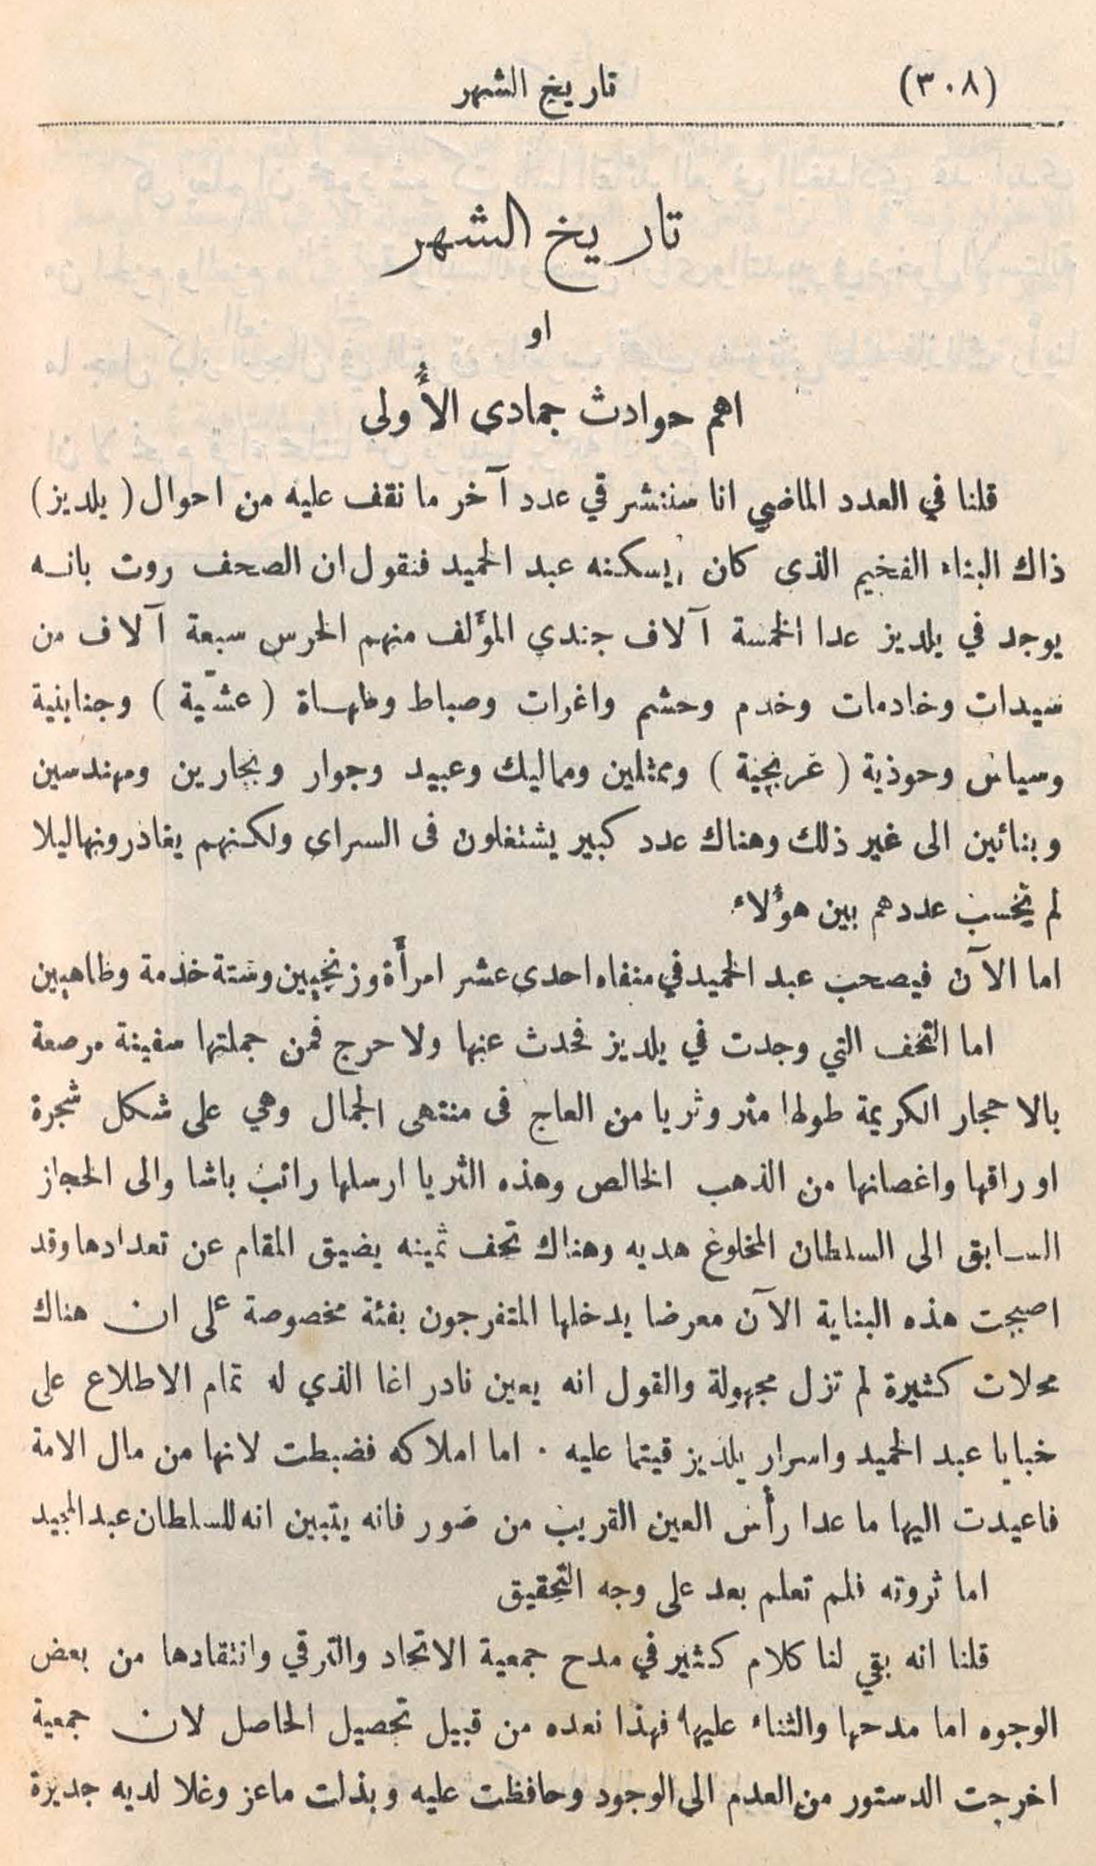 (٣٠٨) تاريخ الشهر
تاريخ الشهر
او
اهم حوادث جمادى الأُولى
قلنا في العدد الماضي انا سننشر في عدد آخر ما نقف عليه من احوال ( يلديز )
ذاك البناء الفخيم الذى كان يسكنه عبد الحميد فنقول ان الصحف روت بانه
يوجد في يلديز عدا الخمسة آلاف جندي المؤلف منهم الحرس سبعة آلاف من
سيدات وخادمات وخدم وحشم واغوات وضباط وطهاة ( عشّية ) وجناينية
وسياس وحوذية ( عربجية ) وممثلين ومماليك وعبيد وجوار ونجارين ومهندسين
وبنائين الى غير ذلك وهناك عدد كبير يشتغلون فى السراى ولكنهم يغادرونها ليلا
لم يحسب عددهم بين هؤلاء
اما الآن فيصحب عبد الحميد في منفاه احدى عشر امرأة وزنجيين وستة خدمة وطاهيين
اما التحف التي وجدت في يلديز فحدث عنها ولا حرج فمن جملتها سفينة مرصعة
بالاحجار الكريمة طولها متر وثريا من العاج فى منتهى الجمال وهي على شكل شجرة
اوراقها واغصانها من الذهب الخالص وهذه الثريا ارسلها راتب باشا والى الحجاز
السابق الى السلطان المخلوع هديه وهناك تحف ثمينه يضيق المقام عن تعدادها وقد
اصبحت هذه البناية الآن معرضا يدخلها المتفرجون بفئة مخصوصة على ان هناك
محلات كثيرة لم تزل مجهولة والقول انه يعين نادر اغا الذي له تمام الاطلاع على
خبايا عبد الحميد واسرار يلديز قيتما عليه . اما املاكه فضبطت لانها من مال الامة
فاعيدت اليها ما عدا رأس العين القريب من صور فانه يتبين انه للسلطان عبد المجيد
اما ثروته فلم تعلم بعد على وجه التحقيق
قلنا انه بقي لنا كلام كثير في مدح جمعية الاتحاد والترقي وانتقادها من بعض
الوجوه اما مدحها والثناء عليها فهذا نعده من قبيل تحصيل الحاصل لان جمعية
اخرجت الدستور من العدم الى الوجود وحافظت عليه وبذلت ماعز وغلا لديه جديرة